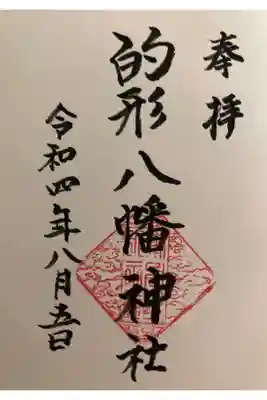 奉拝
的形八幡神社
令和四年八月五日